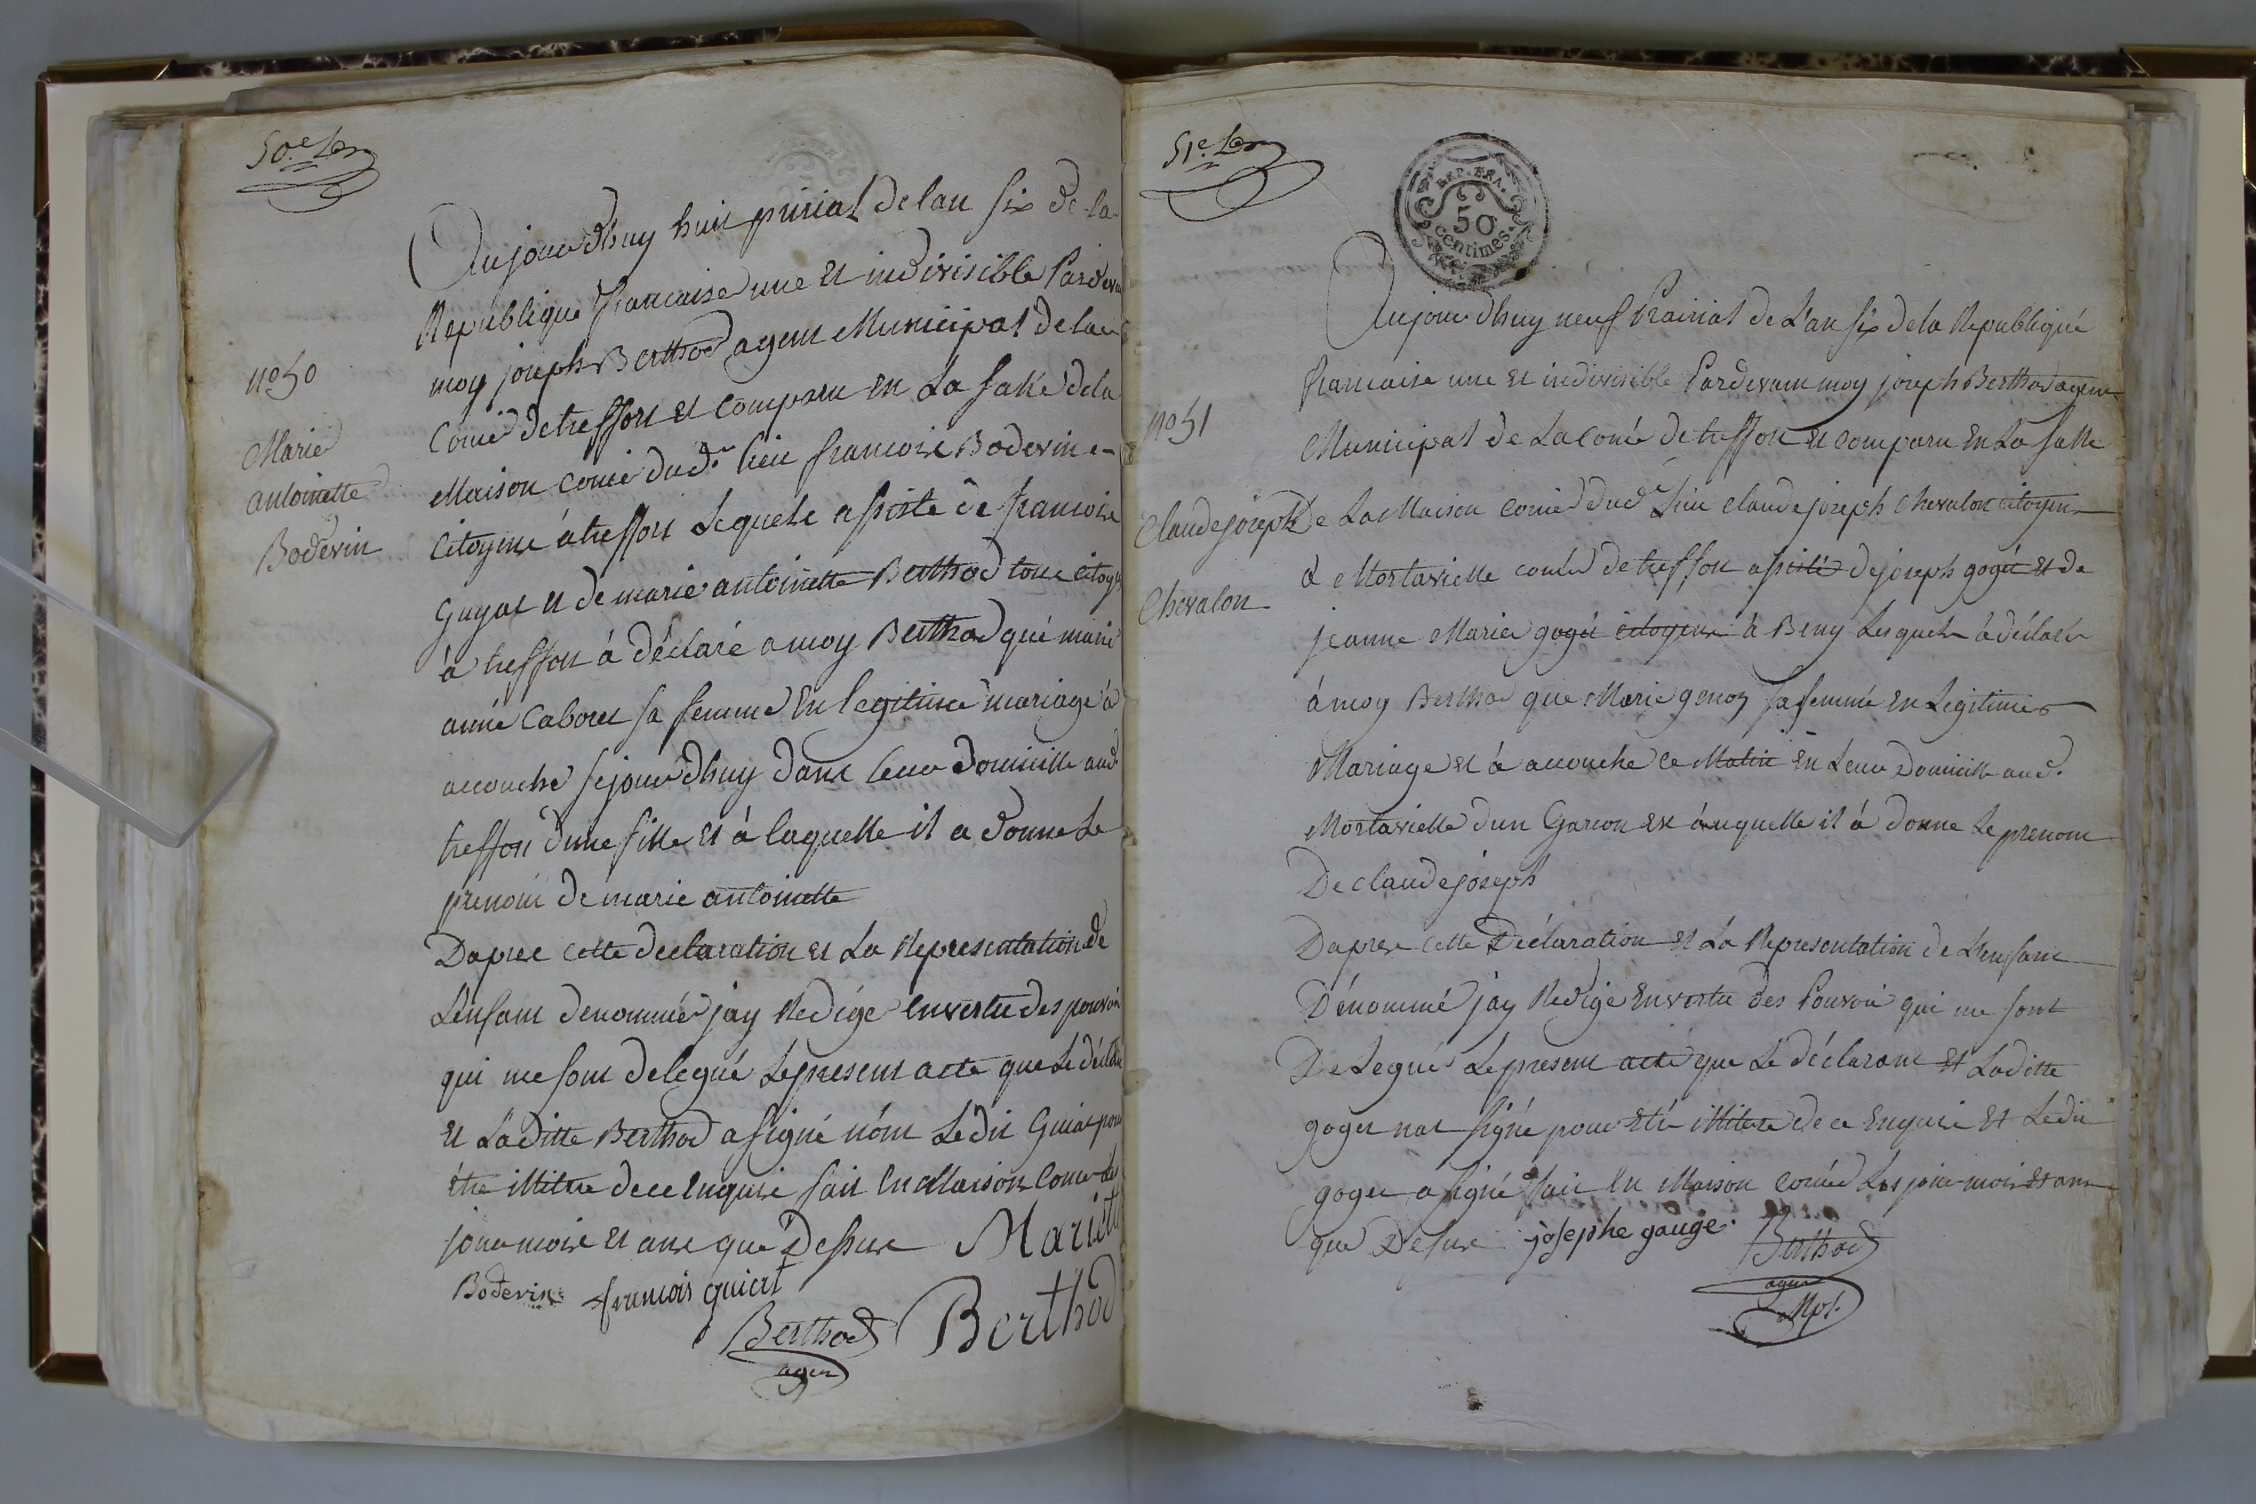 50.e
Aujourdhuy huit pririal de lan six de la
Republique francaise une et indivisible Pardevan
moy joseph Berthod agent Municipal de la
Comè de treffort et comparu en La salle de la
Maison comè dud.t lieu francois Boderin
Citoyens à treffort Lequele assisté de francois
Guyat et de marie antoinette Berthod tous citoy
à treffort à déclaré a moy Berthod què marie
annè Caboret sa femme en legitime mariage à
accouché sejourdhuy dans leur domicille aud
treffort dune fille et à laquelle il a donne Le
prenom de marie antoinette
Dapres cette declaration et La Representation de
Lenfant denommé jay Redigé en vertu des pouvoir
qui me sont delegué Le present acte que Le déclara
et Laditte Berthod a signé nom Ledit Guiat pour
être illitere de ce enquis fait en Maison Come les
jour mois et ans que Dessus Mariette
Boderin francois guiat
Berthod Berthod
agent
n° 50
Marie
antoinette
Boderin
51.e
REP. FRA.
50
centimes
Aujourdhuy neuf Prairial de L'an six de la Republique
francaise une et indivisible Pardevant moy joseph Berthod agent
Municipal de La comè de treffort et comparu en La salle
De La Maison comè dud.t Lieu claude joseph Chevalon citoyen
à Mortarielle comè de treffort assisté de joseph gogét et de
jeanne Marie gogét citoyens à Beny Lesquels à déclaré
à moy Berthod que Marie genoz sa femmè en Legitimes
Mariage et à accouché ce Matin en Leur Domicille aud.
Mortarielle dun Garcon et àuquelle il à donne Le prenom
De claude joseph
Dapres cette Déclaration et La Representation de Lenfant
Dénommé jay Redigé en vertu des Pouvoir qui me sont
Delegué Le present acte que Le déclarant et Laditte
goget nat signé pour etre illitere de ce enquis et Ledit
goget a signé fait en Maison comè Les jour mois et ans
que Desus josephe gauge. Berthod
agent
Mpl.
n° 51
Claude joseph
Chevalon